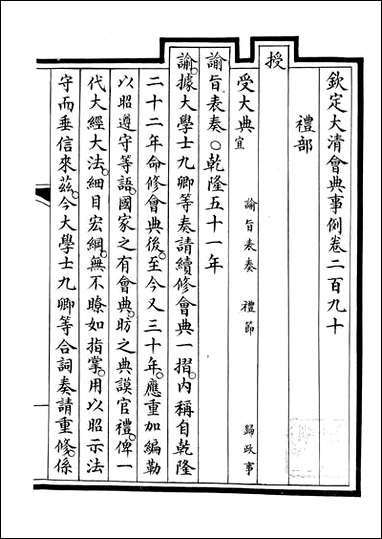 欽定大清會典事例卷二百九十
禮部
授
受大典 宜 諭旨表奏 禮節 歸政事
諭旨表奏○乾隆五十一年
諭據大學士九卿等奏請續修會典一摺內稱自乾隆
二十二年命修會典後至今又三十年應重加編勒
以昭遵守等語國家之有會典昉之典謨官禮俾一
代大經大法細目宏綱無不瞭如指掌用以昭示法
守而垂信來茲今大學士九卿等合詞奏請重修係